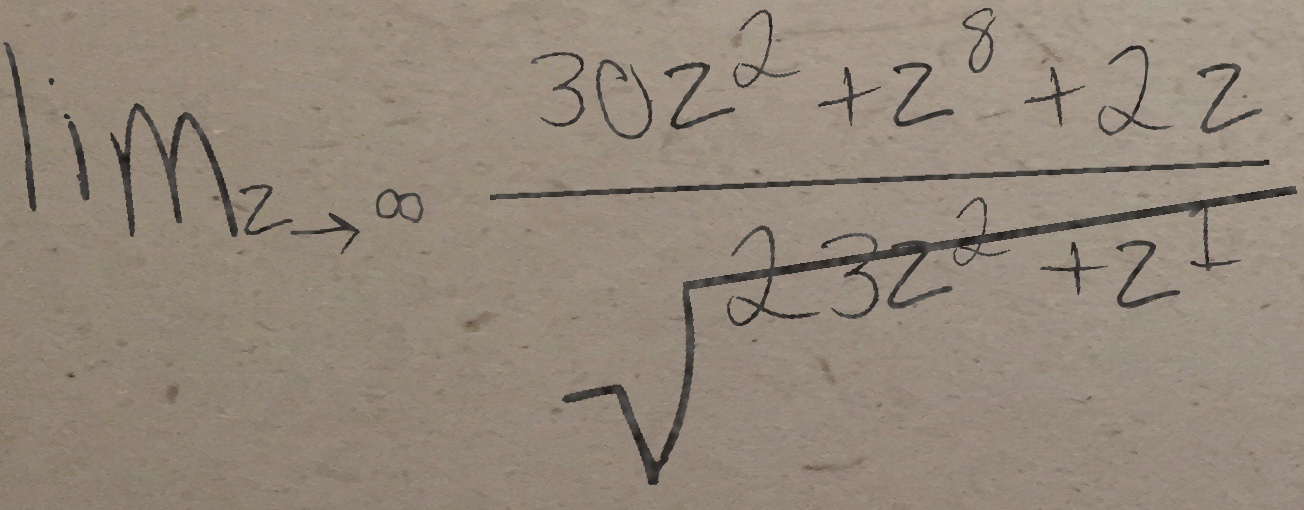 \lim_{z \to \infty} \frac{30z^2 + z^8 + 2z}{\sqrt{23z^2 + z^1}}